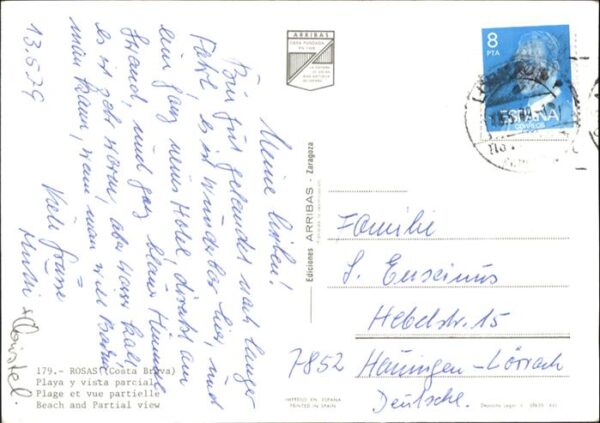 13.5.79
Meine lieben!
Bin gut gelandet nach langer
Fahrt, es ist wunderbar hier, und
ein ganz neues Hotel direkt am
Strand, und ganz blauer Himmel
es ist sehr warm, aber
man kann, wenn man will Baden
Viele Grüsse
179.- ROSAS (Costa Brava)
Playa y vista parcial
Plage et vue partielle
Beach and Partial view
ARRIBAS
CASA FUNDADA
Ediciones ARRIBAS - Zaragoza
IMPRESO EN ESPAÑA
PRINTED IN SPAIN
8
PTA
ESPAÑA
CORREOS
Familie
S. Enscinus
Hebelstr. 15
7852 Hauingen-Lörrach
Deutschl.